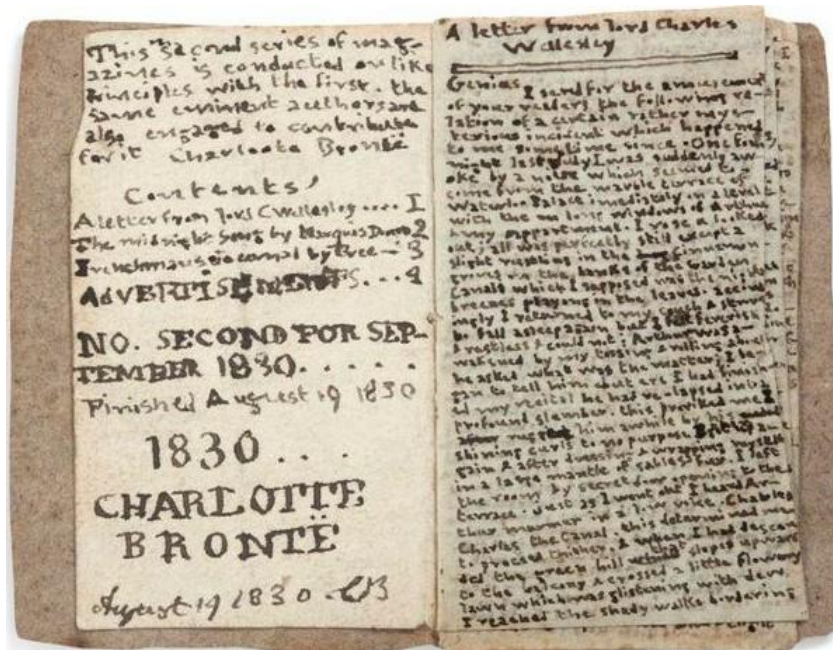 This second series of mag-
azines is conducted on like
Principles with the first. the
same eminent authors are
also engaged to contribute
for it Charloote Brontë
Contents,
A letter from lord C Wellesley .... I
The midnight Song by Marquis Douro 2
Frenchmans journal by Tree — 3
AdVERTISEMENTS... 4
NO. SECOND FOR SEP-
TEMBER 1830. . . . .
Finished August 19 1830
1830 . . .
CHARLOTTE
BRONTË
August 19 1830 . CB
A letter from lord Charles
Wellesley
Genius I send for the amusement
of your readers the following re-
lation of a certain rather mys-
terious incident which happened
to me sometime since. One fine
night last July I was suddenly aw-
oke by a noise which seemed to
come from the marble terrace of
Waterloo Palace imediately on a level
with the long windows of Arthur
& my appartment. I rose & looked
out; all was perfectly still except a
slight rustling in the
groves on the banks of the Garden
Canals which I supposed was the midnight
breezes playing in the leaves. accordin
ingly I returned to my
to fall asleep again but I felt feverish
& restless & could not; Arthur was a-
wakened by my tossing &
he asked what was the matter; I be-
gan to tell him but ere I had finish
ed my recital he had re-lapsed into a
profound slumber. this provoked me I
him awhile by his
shining curls to no purpose
gain & after dressing & wrapping myself
in a large mantle of sables fur. I left
the room by secret door opening to the
terrace. Just as I went out I heard Ar-
thur murmer in a low voice. Charles
Charles the Canal. this determined me
to proceed thither, & when I had descen
ded the green hill slopes upward
to the balcony & crossed a little flowery
lawn which was glistening with dew
I reached the shady walks bordering